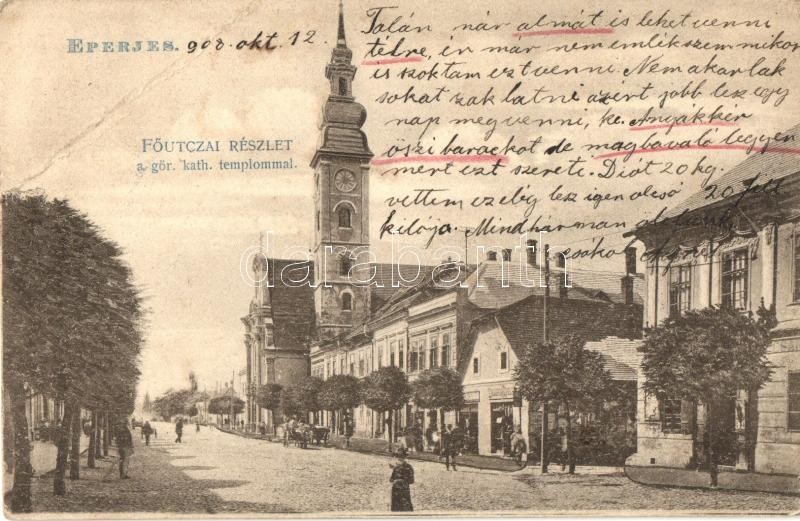 EPERJES. 908. okt. 12.
FŐUTCZAI RÉSZLET
a gör. kath. templommal.
Talán már almát is lehet venni
télre, én már nem emlékszem mikor
is szoktam ezt venni. Nem akarlak
sokat zaklatni azért jobb lesz egy
nap megvenni, ke. Anyákkér
őszi barackot de magbaváló legyen
mert ezt szereti. Diót 20 kg.
vettem ezelőtt lesz igen olcsó 20 fill
kilója. Mindhárman
csókol
darabanth